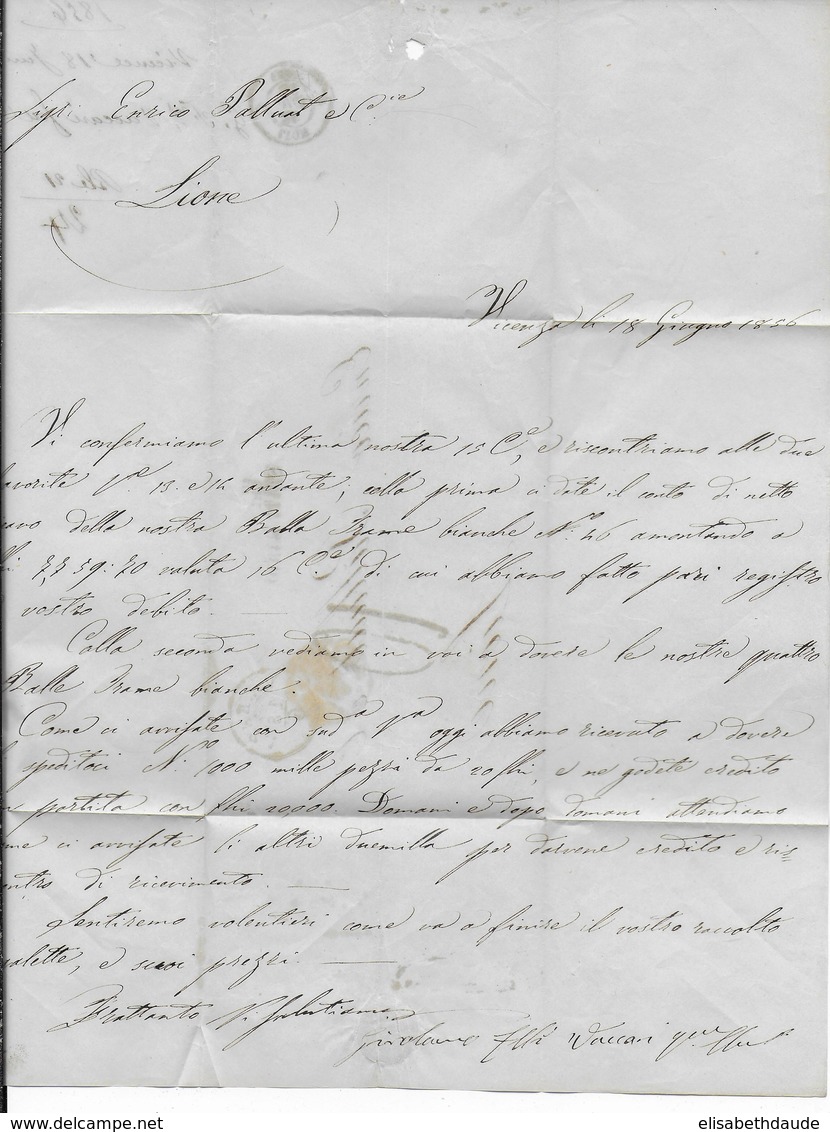 Sigri Enrico Palluat e C.ie
Lione
Vicenza li 18 Giugno 1856
Vi confermiamo l'ultima nostra 15 C.e, e riscontriamo alle due
favorite V.e 13. e 14 andante; colla prima ci date il conto di netto
ricavo della nostra Balla Trame bianche N.o 46 amontando a
77 59:70 valuta 16 C.e di cui abbiamo fatto pari registro
vostro debito.
Colla seconda vediamo in voi a dovere le nostre quattro
Balle Trame bianche.
Come ci avvisate con sud.a V.a oggi abbiamo ricevuto a dovere
speditoci N.ro 1000 mille pezzi da 20 fchi, e ne godete credito
partita con fchi 20,000. Domani e dopo domani attendiamo
come ci avvisate li altri duemilla per darvene credito e ris=
contro di ricevimento.
Sentiremo volentieri come va a finire il vostro raccolto
galette, e suoi prezzi.
Frattanto Vi salutiamo
Girolamo flli Vaccari
elisabethdaude